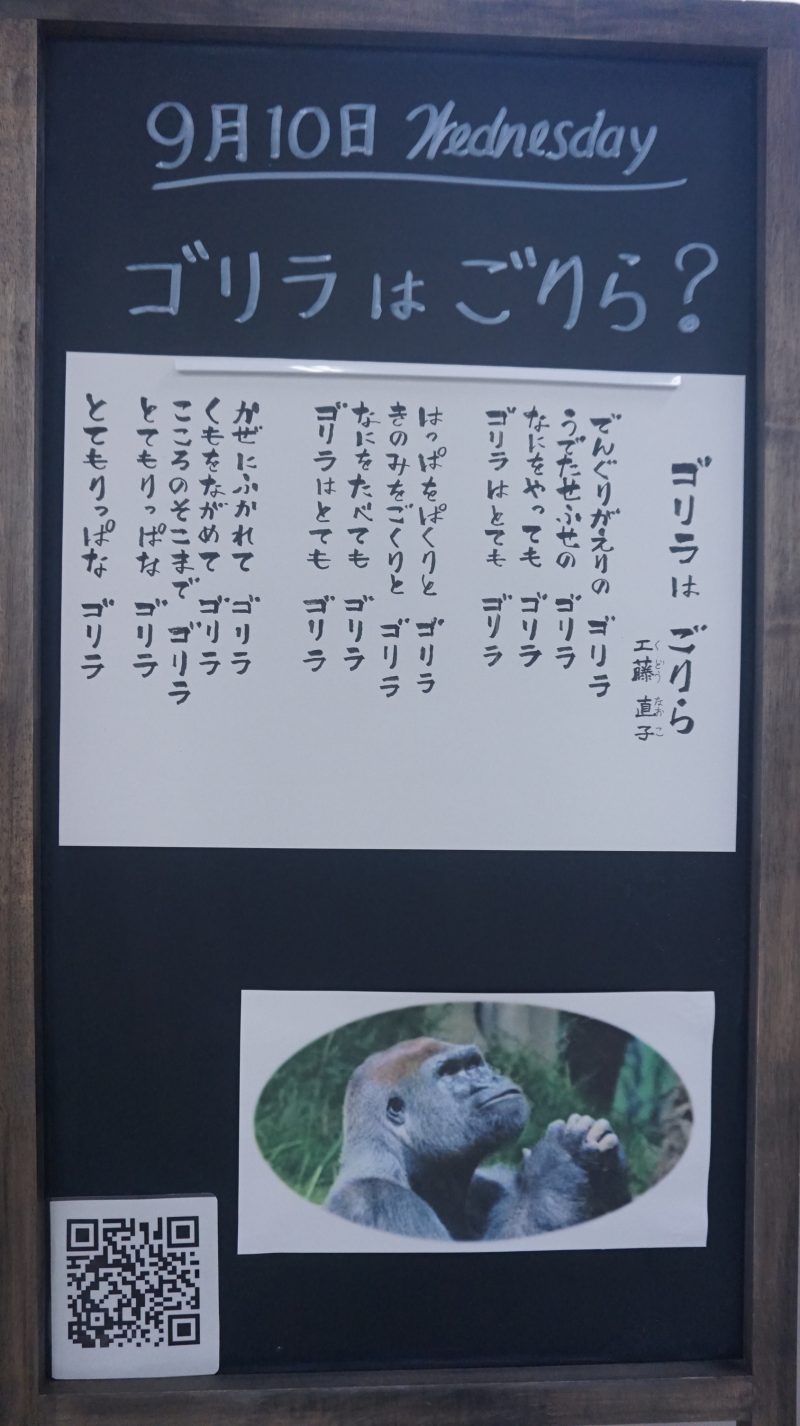 9月10日 Wednesday
ゴリラは ごりら?
ゴリラは ごりら
工藤 直子
くどう なおこ
でんぐりがえりの ゴリラ
うでたせふせの ゴリラ
なにをやっても ゴリラ
ゴリラはとても ゴリラ
はっぱをぱくりと ゴリラ
きのみをごくりと ゴリラ
なにをたべても ゴリラ
ゴリラはとても ゴリラ
かぜにふかれて ゴリラ
くもをながめて ゴリラ
こころのそこまで ゴリラ
とてもりっぱな ゴリラ
とてもりっぱな ゴリラ